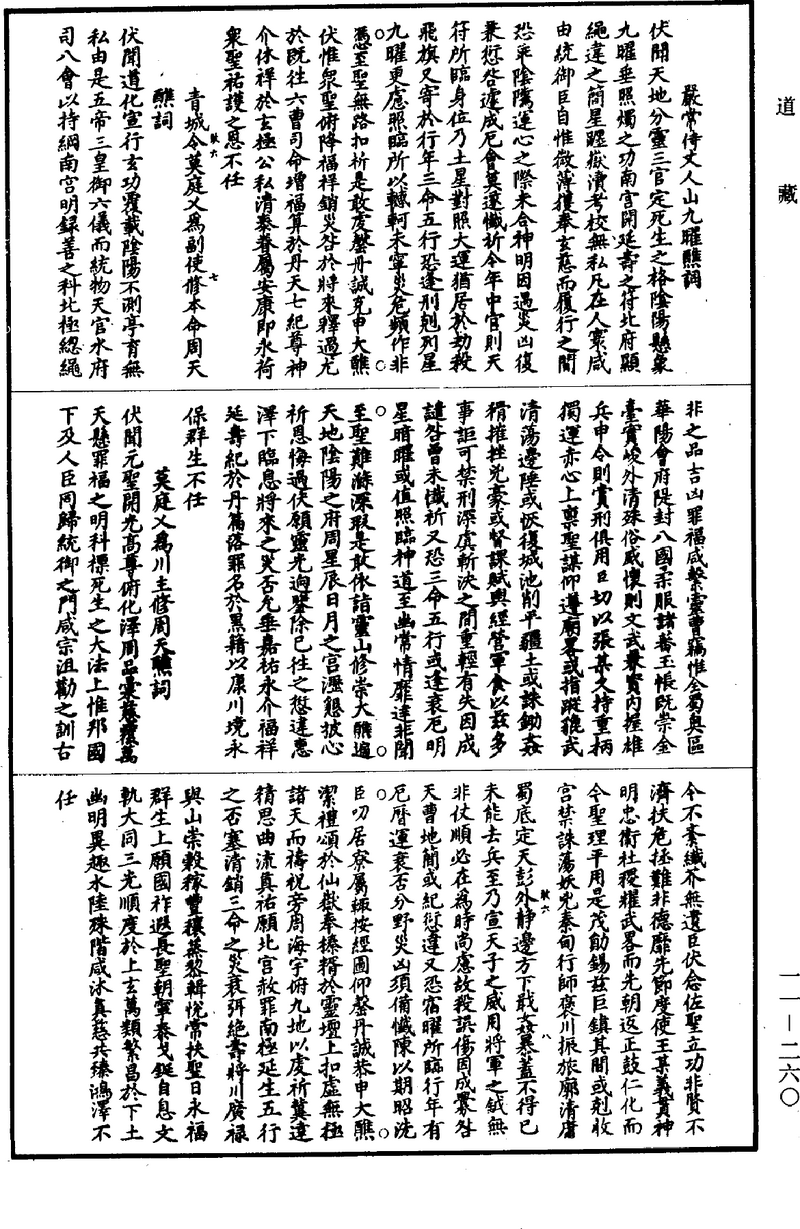 道藏
嚴常侍丈人山九曜醮詞
伏聞天地分靈三官定死生之格陰陽懸象
九曜垂照燭之功南宮開延壽之符北府顯
繩違之簡星躔嶽瀆考校無私凡在人寰咸
由統御臣自惟微薄獲奉玄慈而履行之間
恐乖陰騭運心之際未合神明因遇災凶復
兼愆咎遽成厄會莫遂懺祈今年中宮則天
符所臨身位乃土星對照大運猶居於劫殺
飛旗又寄於行年三命五行恐逢刑剋列星
九曜更慮照臨所以轗軻未寧災危頻作非
憑至聖無路扣祈是敢虔罄丹誠克申大醮
伏惟衆聖俯降福祥銷災咎於將來釋過尤
於既往六曹司命增福算於丹天七紀尊神
介休祥於玄極公私清泰眷屬安康即永荷
衆聖祐護之恩不任
青城令莫庭乂為副使修本命周天
醮詞
伏聞道化宣行玄功覆載陰陽不測亭育無
私由是五帝三皇御六儀而統物天官水府
司八會以持綱南宮明録善之科北極總繩
非之品吉凶罪福咸繫靈曹竊惟全蜀奥區
華陽會府隄封八國柔服諸蕃玉帳既崇金
臺實峻外清殊俗威懷則文武兼資内握雄
兵申令則賞刑俱用臣切以張某久持重柄
獨運赤心上禀聖謀仰遵廟畧或指蹤驍武
清蕩邊陲或恢復城池削平疆土或誅鋤姦
猾摧挫兇豪或督課賦輿經營軍食以兹多
事詎可禁刑深虞斬決之間重輕有失因成
譴咎曾未懺祈又恐三命五行或逢衰厄明
星暗曜或值照臨神道至幽常情靡達非聞
至聖難滌深瑕是敢休詣靈山修崇大醮遍
天地陰陽之府周星辰日月之宮瀝懇披心
祈恩悔過伏願靈光迥鑒除已往之愆違惠
澤下臨息將來之災否允垂嘉祐永介福祥
延壽紀於丹篇落罪名於黑籍以康川境永
保羣生不任
莫庭乂為川主修周天醮詞
伏聞元聖開光高尊俯化澤周品彙慈覆萬
天懸罪福之明科標死生之大法上惟邦國
下及人臣罔歸統御之門咸宗沮勸之訓古
今不紊纖芥無遺臣伏念佐聖立功非賢不
濟扶危拯難非德靡先節度使王某義貫神
明忠衛社稷耀武畧而先朝返正鼓仁化而
令聖理平用是茂勛錫兹巨鎮其間或剋收
宮禁誅蕩妖兇秦甸行師褒川振旅廓清庸
蜀底定天彭外静邊方下戢姦暴蓋不得已
未能去兵至乃宣天子之威用將軍之鉞無
非仗順必在為時尚慮故殺誤傷因成累咎
天曹地簡或紀愆違又恐宿曜所臨行年有
厄曆運衰否分野災凶須備懺陳以期昭洗
臣叨居寮屬輒按經圖仰罄丹誠恭申大醮
潔禮頌於仙嶽奉榛糈於靈壇上扣虛無極
諸天而禱祝旁周海宇俯九地以虔祈冀達
精思曲流真祐願北宮赦罪南極延生五行
之否塞清銷三命之災衰弭絶壽將川廣禄
與山崇穀稼豐穰蒸黎輯悅常扶聖日永福
羣生上願國祚遐長聖朝寧泰戈鋋自息文
軌大同三光順度於上玄萬類繁昌於下土
幽明異趣水陸殊階咸沐真慈共臻鴻澤不
任
一一—二六〇